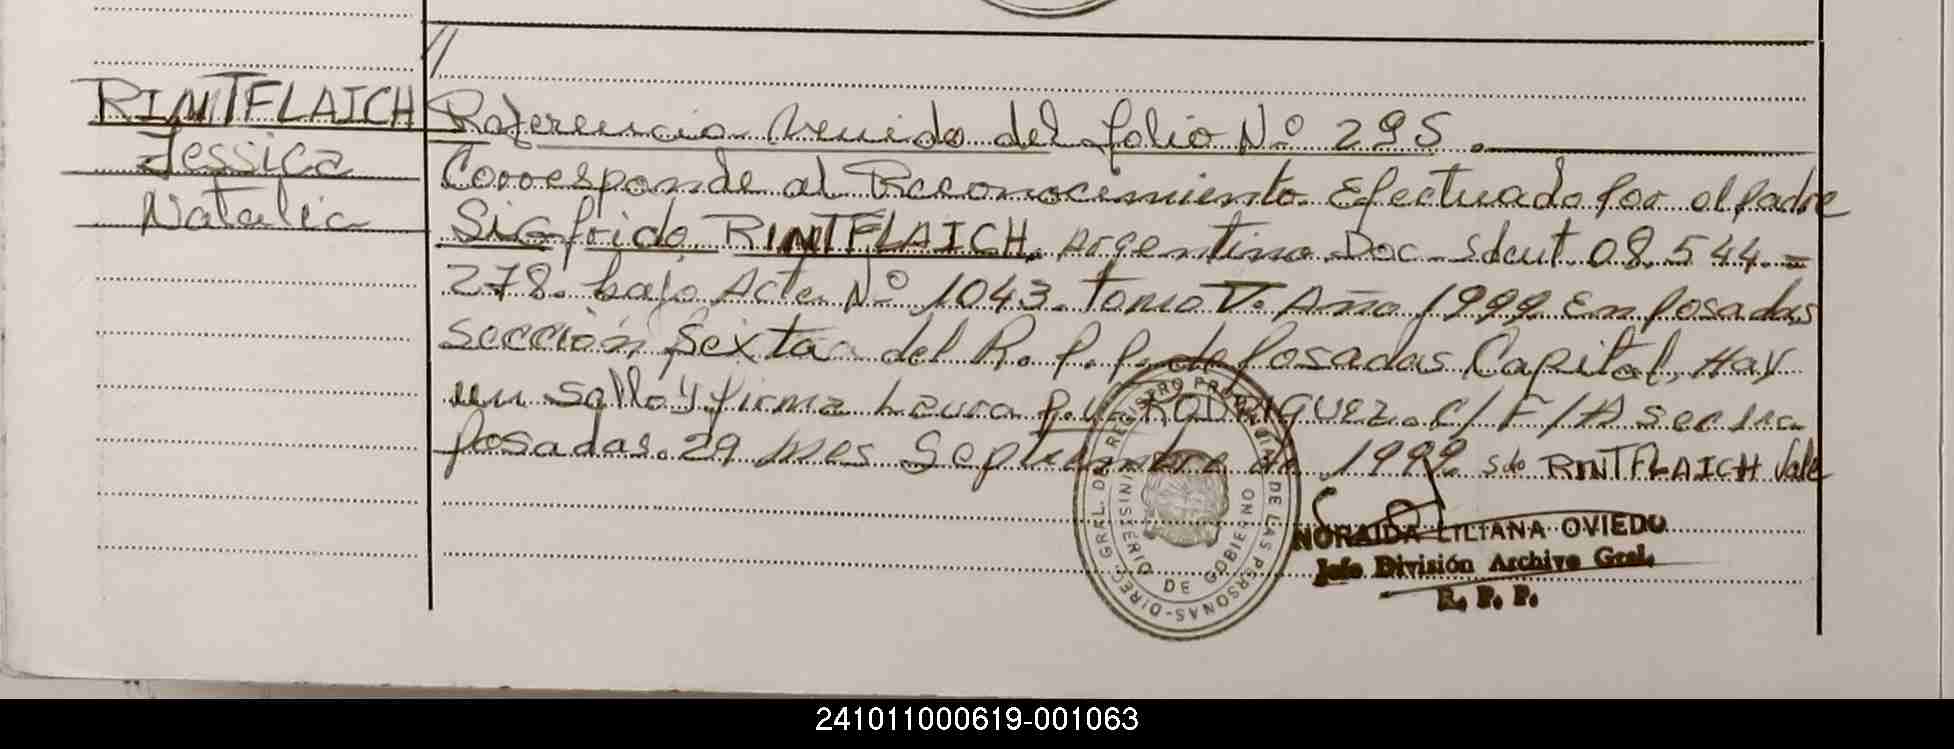 //
RINTFLAICH
Jessica
Natalia
Referencia venido del folio Nº 295.
Corresponde al Reconocimiento Efectuado por el padre
Sigfrido RINTFLAICH. Argentino Doc. Ident. 08.544.=
278. bajo Acta Nº 1043. Tomo V. Año 1999 En Posadas
sección Sexta del R. P. P. de Posadas Capital, Hay
un sello y firma Laura RODRIGUEZ. C/F/A
Posadas. 29 mes Septiembre de 1999. Sdo RINTFLAICH Vale
DIREC. GRAL. DE REGISTRO PROVINCIAL DE LAS PERSONAS
DE GOBIERNO
NORAIDA LILIANA OVIEDO
Jefe División Archivo Gral.
R. P. P.
241011000619-001063